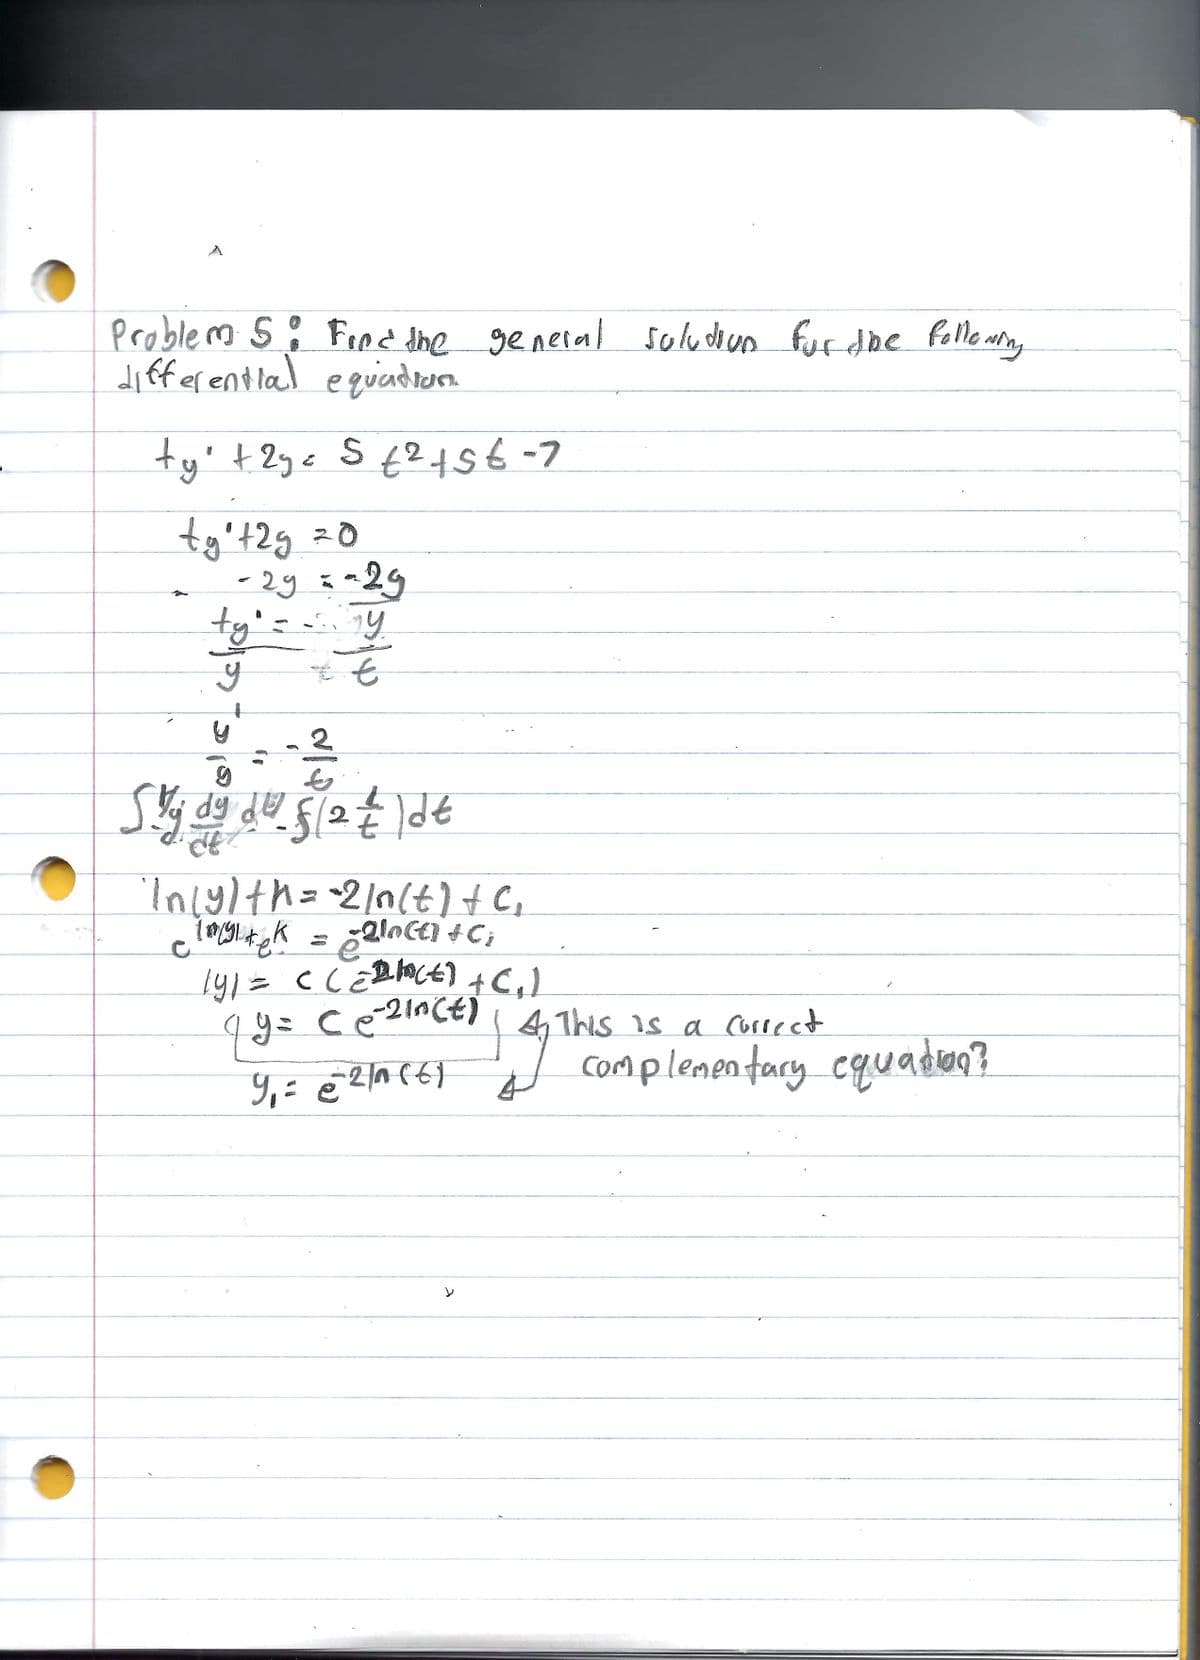 Problem 5: Find the general solution for the following
differential equation
ty' + 2y = 5t²+5t-7
ty'+2y =0
-2y = -2y
ty' = - y
y t
y'/y = -2/t
∫ 1/y dy/dt dt = -∫(2 1/t)dt
ln(y)+k = -2ln(t) + C₁
e^ln(y)+e^k = e^-2ln(t) + C₁
|y| = C(e^-2ln(t) + C₁)
y = Ce^-2ln(t) This is a correct
y₁ = e^-2ln(t) complementary equation?